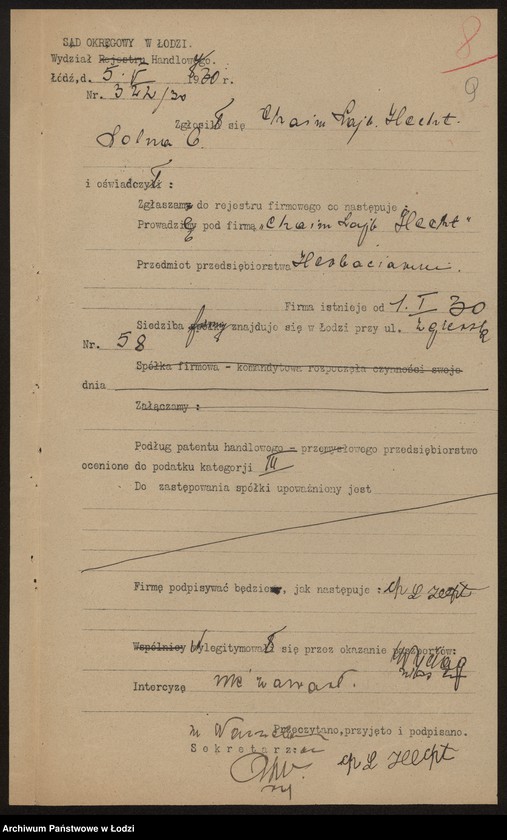 8
9
SĄD OKRĘGOWY W ŁODZI.
Wydział Rejestru Handlowego.
Łódź, d. 5. V 1930 r.
Nr. 322/30
Zgłosił się Chaim Lajb Hecht.
Solna 6.
i oświadczył:
Zgłaszam do rejestru firmowego co następuje:
Prowadzę pod firmą "Chaim Lajb Hecht"
Przedmiot przedsiębiorstwa Herbaciarnia.
Firma istnieje od 1. I 30
Siedziba spółki firmy znajduje się w Łodzi przy ul. Zgierską
Nr. 58
Spółka firmowa - komandytowa rozpoczęła czynności swoje
dnia
Załączamy:
Podług patentu handlowego - przemysłowego przedsiębiorstwo
ocenione do podatku kategorji III
Do zastępowania spółki upoważniony jest
Firmę podpisywać będzie, jak następuje:
Wspólnicy wylegitymował się przez okazanie paszportów:
Intercyzę nie zawarł.
Przeczytano, przyjęto i podpisano.
Sekretarz:
Archiwum Państwowe w Łodzi